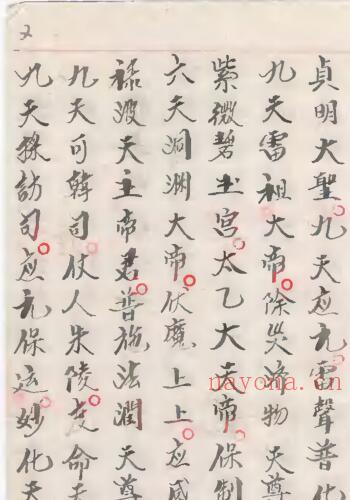 2
貞明大聖。九天应元雷聲普化
九天雷祖大帝。除災沛物天尊
紫微碧玉宫。太乙大天帝。保制
六天洞渊大帝。伏魔上上。应感
禄波天主帝君。普施法潤天尊
九天可韓司仗人朱陵。度命天
九天採訪司。应元保运。妙化天
nayona.cn